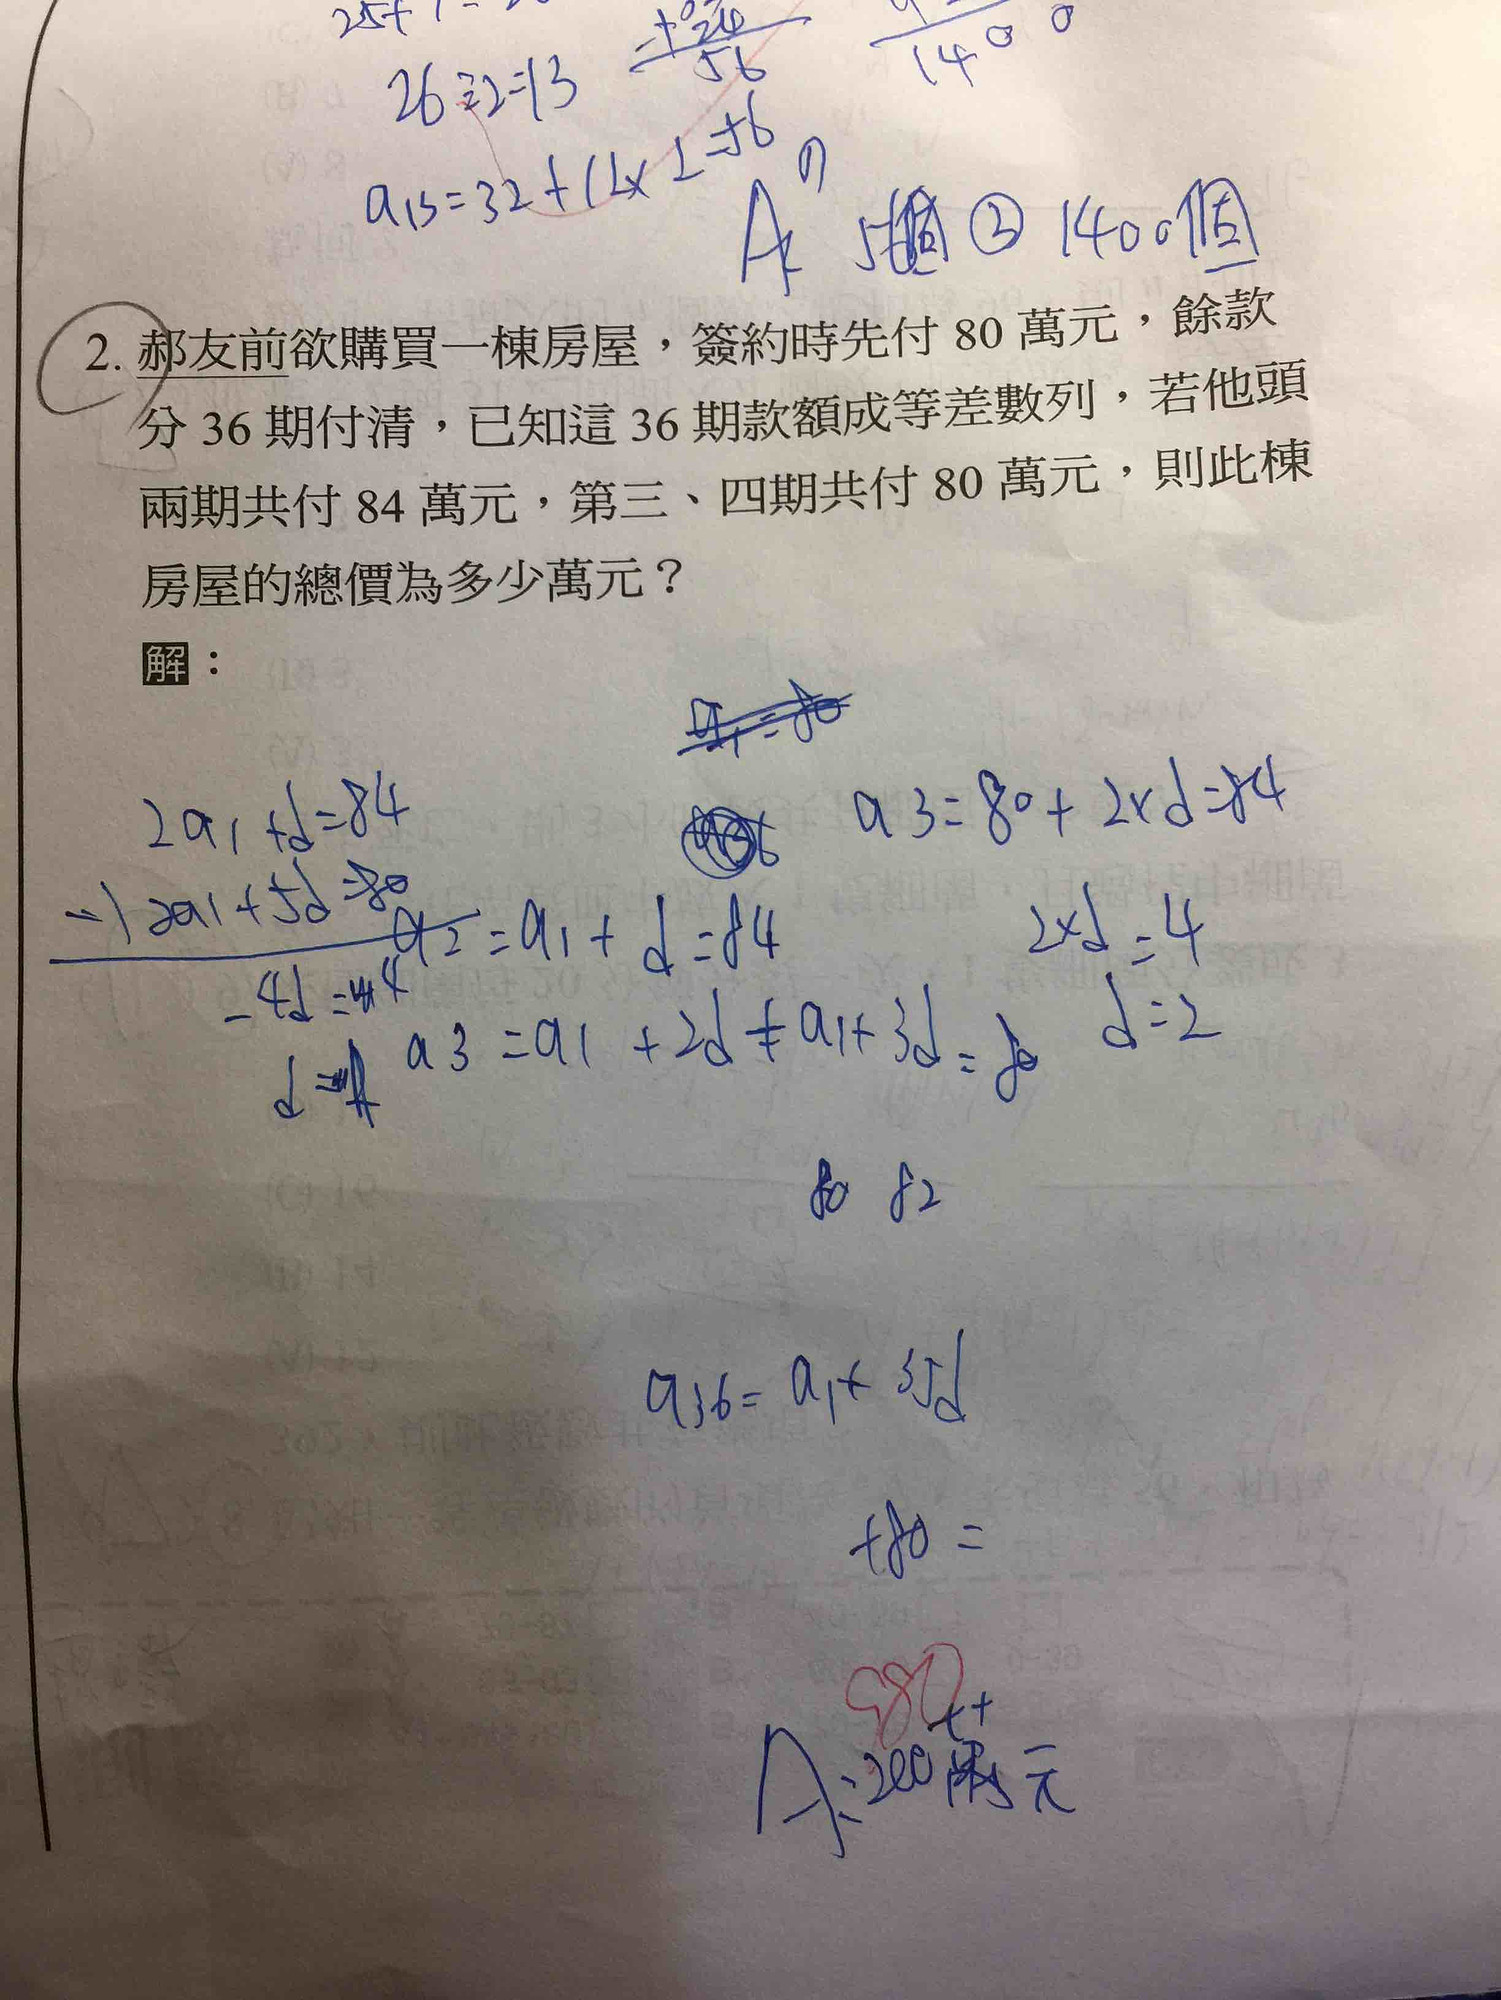 26÷2=13
56
1400
a13=32+12×2=56
A (1) 56個 ② 1400個
2. 郝友前欲購買一棟房屋，簽約時先付 80 萬元，餘款
分 36 期付清，已知這 36 期款額成等差數列，若他頭
兩期共付 84 萬元，第三、四期共付 80 萬元，則此棟
房屋的總價為多少萬元？
解：
a1=80
2a1+d=84
a3=80+2×d=84
-) 2a1+5d=80
a2=a1+d=84
2×d=4
-4d=4
a3=a1+2d+a1+3d=80
d=2
80 82
a36=a1+35d
+80=
980
A:200萬元